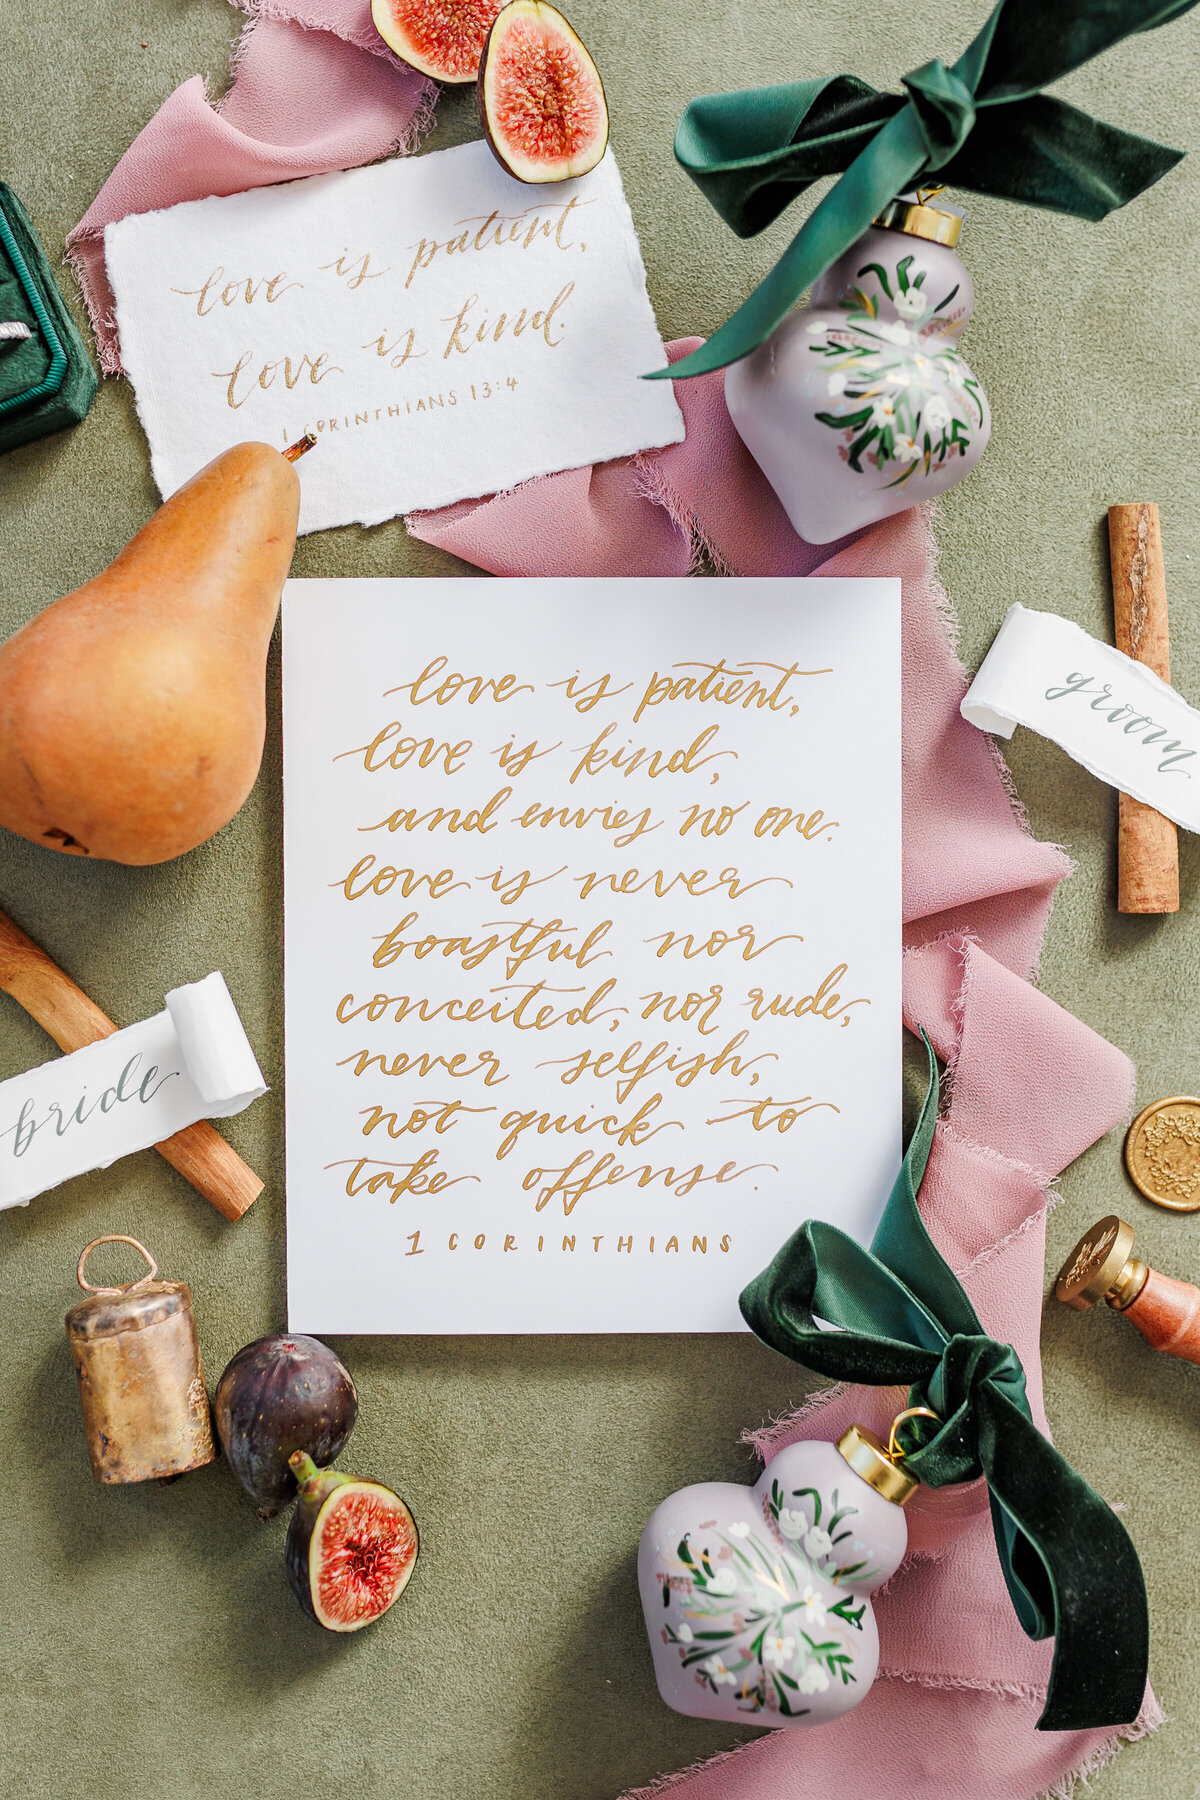 love is patient,
love is kind.
1 CORINTHIANS 13:4
love is patient,
love is kind,
and envies no one.
love is never
boastful nor
conceited, nor rude,
never selfish,
not quick to
take offense.
1 CORINTHIANS
groom
bride